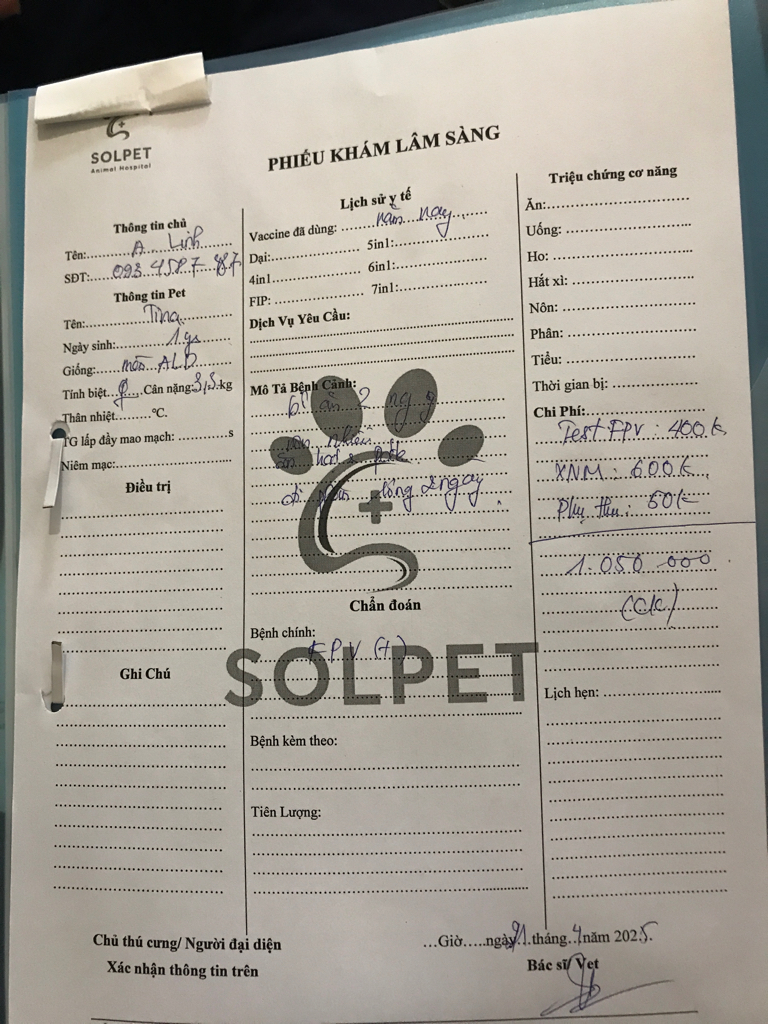 SOLPET
Animal Hospital
PHIẾU KHÁM LÂM SÀNG
Thông tin chủ
Tên: A Linh
SĐT: 093 4587 787
Thông tin Pet
Tên: Tina
Ngày sinh: 1 ys
Giống: mèo ALD
Tính biệt Cân nặng: 3,3 kg
Thân nhiệt °C.
TG lấp đầy mao mạch: s
Niêm mạc:
Điều trị
Ghi Chú
Lịch sử y tế
Vaccine đã dùng: năm nay
Dại: 5in1:
4in1 6in1:
FIP: 7in1:
Dịch Vụ Yêu Cầu:
Mô Tả Bệnh Cảnh:
bỏ ăn 2 ngày
nôn nhiều
ăn hạt & pate
2 ngày
SOLPET
Chẩn đoán
Bệnh chính:
FPV (+)
Bệnh kèm theo:
Tiên Lượng:
Triệu chứng cơ năng
Ăn:
Uống:
Ho:
Hắt xì:
Nôn:
Phân:
Tiểu:
Thời gian bị:
Chi Phí:
Test FPV: 400k
XNM: 600k
Phụ thu: 50k
1.050 000
(CK)
Lịch hẹn:
Chủ thú cưng/ Người đại diện
Xác nhận thông tin trên
...Giờ.....ngày 21 tháng 4 năm 2025.
Bác sĩ/ Vet